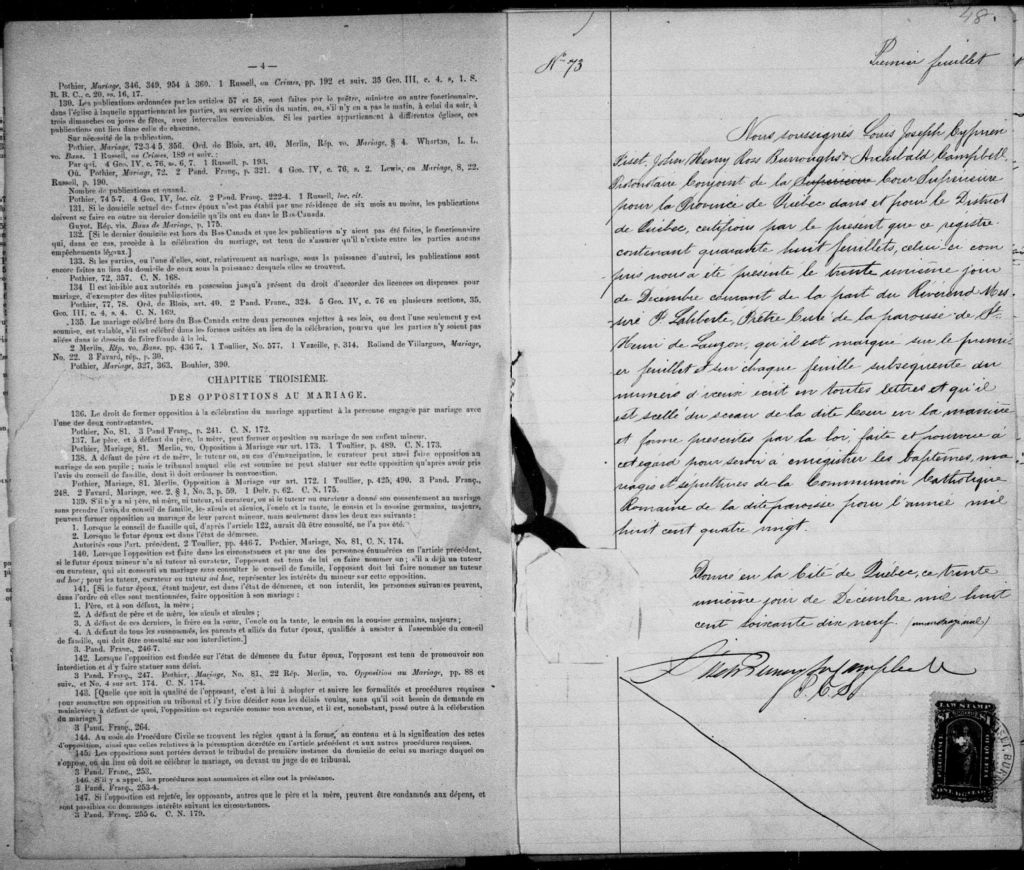 — 4 —
Pothier, Mariage, 346. 349, 954 à 360. 1 Russell, on Crimes, pp. 192 et suiv. 35 Geo. III, c. 4. s, 1. S.
R. B. C., c. 20, ss. 16, 17.
130. Les publications ordonnées par les articles 57 et 58, sont faites par le prêtre, ministre ou autre fonctionnaire,
dans l'église à laquelle appartiennent les parties, au service divin du matin, ou, s'il n'y en a pas le matin, à celui du soir, à
trois dimanches ou jours de fêtes, avec intervalles convenables. Si les parties appartiennent à différentes églises, ces
publications ont lieu dans celle de chacune.
Sur nécessité de la publication.
Pothier, Mariage, 72-3 4 5, 356. Ord. de Blois, art. 40. Merlin, Rép. vo. Mariage, § 4. Whartan, L. L.
vo. Bans. 1 Russell, on Crimes, 189 et suiv. :
Par qui. 4 Geo. IV, c. 76, ss. 6, 7. 1 Russell, p. 193.
Où. Pothier, Mariage, 72. 2 Pand. Franç., p. 321. 4 Geo. IV, c. 76, s. 2. Lewis, on Mariage, 8, 22.
Russell, p. 190.
Nombre de publications et quand.
Pothier, 74 5-7. 4 Geo, IV, loc. cit. 2 Pand. Franç. 222-4. 1 Russell, loc. cit.
131. Si le domicile actuel des futurs époux n'est pas établi par une résidence de six mois au moins, les publications
doivent se faire en outre au dernier domicile qu'ils ont eu dans le Bas-Canada.
Guyot. Rép. vis. Bans de Mariage, p. 175.
132. [Si le dernier domicile est hors du Bas-Canada et que les publications n'y aient pas été faites, le fonctionnaire
qui, dans ce cas, procède à la célébration du mariage, est tenu de s'assurer qu'il n'existe entre les parties aucuns
empêchements légaux.]
133. Si les parties, ou l'une d'elles, sont, relativement au mariage, sous la puissance d'autrui, les publications sont
encore faites au lieu du domicile de ceux sous la puissance desquels elles se trouvent.
Pothier, 72, 357. C. N. 168.
134 Il est loisible aux autorités en possession jusqu'à présent du droit d'accorder des licences ou dispenses pour
mariage, d'exempter des dites publications.
Pothier, 77, 78. Ord. de Blois, art. 40. 2 Pand. Franc., 324. 5 Geo. IV, c. 76 en plusieurs sections, 35.
Geo. III, c. 4, s. 4. C. N. 169.
135. Le mariage célébré hors du Bas-Canada entre deux personnes sujettes à ses lois, ou dont l'une seulement y est
soumise, est valable, s'il est célébré dans les formes usitées au lieu de la célébration, pourvu que les parties n'y soient pas
allées dans le dessein de faire fraude à la loi.
2 Merlin, Rép. vo. Bans, pp. 436 7. 1 Toullier, No. 577. 1 Vazeille, p. 314. Rolland de Villargues, Mariage,
No. 22. 3 Favard, rép., p. 30.
Pothier, Mariage, 327, 363. Bouhier, 390.
CHAPITRE TROISIÉME.
DES OPPOSITIONS AU MARIAGE.
136. Le droit de former opposition à la célébration du mariage appartient à la personne engagée par mariage avec
l'une des deux contractantes.
Pothier, No. 81. 3 Pand Franç., p. 241. C. N. 172.
137. Le père, et à défaut du père, la mère, peut former opposition au mariage de son enfant mineur.
Pothier, Mariage, 81. Merlin, vo. Opposition à Mariage sur art. 173. 1 Toullier, p. 489. C. N. 173.
138. A défaut de père et de mère, le tuteur ou, au cas d'émancipation, le curateur peut aussi faire opposition au
mariage de son pupile ; mais le tribunal auquel elle est soumise ne peut statuer sur cette opposition qu'après avoir pris
l'avis du conseil de famille, dont il doit ordonner la convocation.
Pothier, Mariage, 81. Merlin, Opposition à Mariage sur art. 172. 1 Toullier, p. 425, 490. 3 Pand. Franç.,
248. 2 Favard, Mariage, sec. 2. § 1, No. 3, p. 59. 1 Delv. p. 62. C. N. 175.
139. S'il n'y a ni père, ni mère, ni tuteur, ni curateur, ou si le tuteur ou curateur a donné son consentement au mariage
sans prendre l'avis du conseil de famille, les aïeuls et aïeules, l'oncle et la tante, le cousin et la cousine germains, majeurs,
peuvent former opposition au mariage de leur parent mineur, mais seulement dans les deux cas suivants :
1. Lorsque le conseil de famille qui, d'après l'article 122, aurait dû être consulté, ne l'a pas été.
2. Lorsque le futur époux est dans l'état de démence.
Autorités sous l'art. précédent, 2 Toullier, pp. 446 7. Pothier, Mariage, No. 81, C. N. 174.
140. Lorsque l'opposition est faite dans les circonstances et par une des personnes énumérées en l'article précédent,
si le futur époux mineur n'a ni tuteur ni curateur, l'opposant est tenu de lui en faire nommer un ; s'il a déjà un tuteur
ou curateur, qui ait consenti au mariage sans consulter le conseil de famille, l'opposant doit lui faire nommer un tuteur
ad hoc ; pour les tuteur, curateur ou tuteur ad hoc, représenter les intérêts du mineur sur cette opposition.
141. [Si le futur époux, étant majeur, est dans l'état de démence, et non interdit, les personnes suivantes peuvent,
dans l'ordre où elles sont mentionnées, faire opposition à son mariage :
1. Père, et à son défaut, la mère ;
2. A défaut de père et de mère, les aïeuls et aïeules ;
3. A défaut de ces derniers, le frère ou la sœur, l'oncle ou la tante, le cousin ou la cousine germains, majeurs ;
4. A défaut de tous les susnommés, les parents et alliés du futur époux, qualifiés à assister à l'assemblée du conseil
de famille, qui doit être consulté sur son interdiction.]
3. Pand. Franç., 246-7.
142. Lorsque l'opposition est fondée sur l'état de démence du futur époux, l'opposant est tenu de promouvoir son
interdiction et d'y faire statuer sans délai.
3 Pand. Franç., 247. Pothier, Mariage, No. 81, 22 Rép. Merlin, vo. Opposition au Mariage, pp. 88 et
suiv., et No. 4 sur art. 174. C. N. 174.
143. [Quelle que soit la qualité de l'opposant, c'est à lui à adopter et suivre les formalités et procédures requises
pour soumettre son opposition au tribunal et l'y faire décider sous les délais voulus, sans qu'il soit besoin de demande en
mainlevée ; à défaut de quoi, l'opposition est regardée comme non avenue, et il est, nonobstant, passé outre à la célébration
du mariage.]
3 Pand. Franç., 264.
144. Au code de Procédure Civile se trouvent les règles quant à la forme, au contenu et à la signification des actes
d'opposition, ainsi que celles relatives à la péremption décrétée en l'article précédent et aux autres procédures requises.
145. Les oppositions sont portées devant le tribunal de première instance du domicile de celui au mariage duquel on
s'oppose, ou du lieu où doit se célébrer le mariage, ou devant un juge de ce tribunal.
3 Pand. Franc., 253.
146. S'il y a appel, les procédures sont sommaires et elles ont la préséance.
3 Pand. Franc., 253-4.
147. Si l'opposition est rejetée, les opposants, autres que le père et la mère, peuvent être condamnés aux dépens, et
sont passibles de dommages intérêts suivant les circonstances.
3 Pand. Franç. 255 6. C. N. 179.
48.
No 73
Premier feuillet
Nous soussignés Louis Joseph Cyprien
Fiset, John Henry Ross Burroughs & Archibald Campbell
Protonotaire Conjoint de la Supérieure Cour Supérieure
pour la Province de Québec dans et pour le District
de Québec, certifions par le présent que ce registre
contenant quarante huit feuillets, celui ci com
pris nous a été présenté le trente unième jour
de Décembre courant de la part du Révérend Mes
sire F. Laliberté, Prêtre Curé de la paroisse de St
Henri de Lauzon, qu'il est marqué sur le premi
er feuillet et sur chaque feuille subséquente du
numéro d'iceux écrit en toutes lettres et qu'il
est scellé du sceau de la dite Cour en la manière
et forme prescrites par la loi, faite et pourvue à
cet égard pour servir à enregistrer les baptèmes, ma
riages et sépultures de la Communion Catholique
Romaine de la dite paroisse pour l'année mil
huit cent quatre vingt.
Donné en la Cité de Québec, ce trente
unième jour de Decembre mil huit
cent soixante dix neuf.
Fiset Burroughs Campbell
P. C. S.
LAW STAMP
ONE DOLLAR